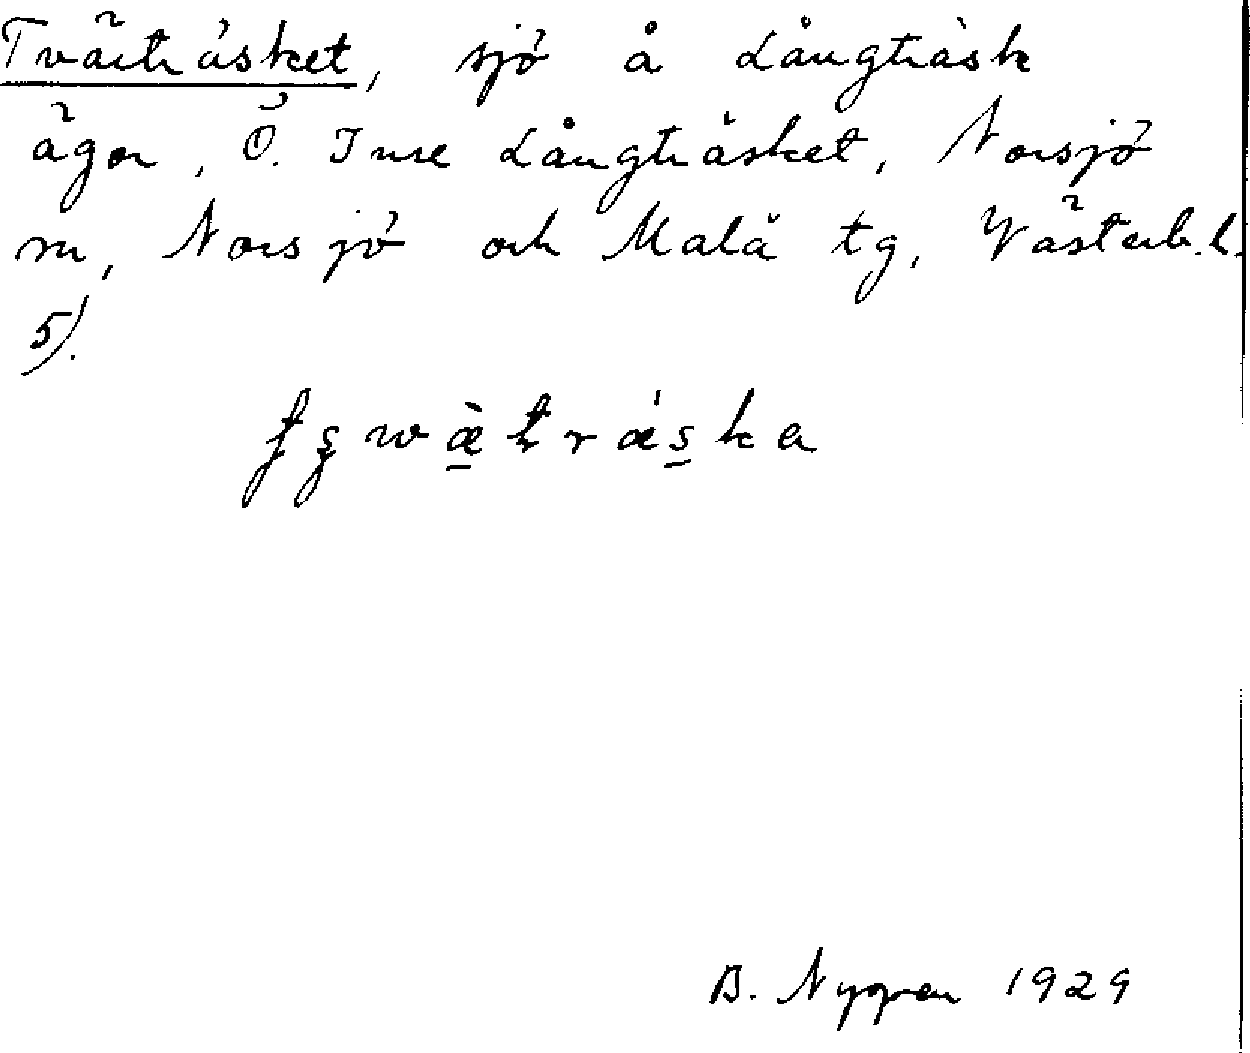 Tvärträsket, sjö å Långträsk
ägor, Ö. Inre Långträsket, Norsjö
sn, Norsjö och Malå tg, Västerb. l.
5).
B. Nygren 1929